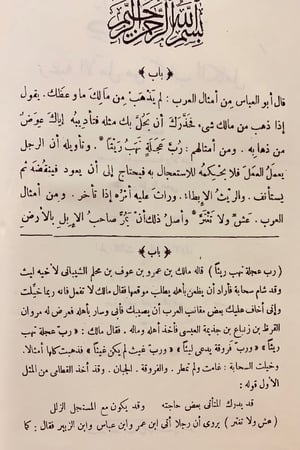 بسم الله الرحمن الرحيم
﴿ باب ﴾
قال أبو العباس مِن أمثال العرب : لم يَذْهَبْ مِن مَالِكَ ما وعَظَكَ . يقول
إذا ذهب من مالك شيء فحَذَّرَكَ أن يَحُلَّ بك مثله فتأديبُه إياك عِوَضٌ
من ذهابِه . ومن أمثالهم : رُبَّ عَجَلَةٍ تَهَبُ رَيْثًا . وتأويله أن الرجل
يعملُ العملَ فلا يُحكِمُه للاستعجال به فيحتاج إلى أن يعود فينقُضَه ثم
يستأنف . والرَّيْثُ الإبطاء . وراثَ عليه أمرُه إذا تأخر . ومن أمثال
العرب . عَشِّ ولا تَغْتَرَّ . وأصل ذلك أن يَمُرَّ صاحبُ الإبل بالأرض
﴿ باب ﴾
( رب عجلة تهب ريثا ) قاله مالك بن عمرو بن عوف بن محلم الشيباني لأخيه ليث
وقد شام سحابة فأراد أن يظعن بأهله يطلب موقعها فقال مالك لا تفعل فانه ربما خيلت
وإني أخاف عليك بعض مقانب العرب أن يصيبك فأبى وسار بأهله فعرض له مروان
القرظ بن زنباع بن جذيمة العبسي فأخذ أهله وماله . فقال مالك : « رب عجلة تهب
ريثا » « ورب فروقة يدعى ليثا » « ورب غيث لم يكن غيثا » فذهبت كلها أمثالا .
وخيلت السحابة : غامت ولم تمطر . والفروقة . الجبان . وقد أخذ القطامي من المثل
الأول قوله :
قد يدرك المتأنى بعض حاجته وقد يكون مع المستعجل الزلل
( عش ولا تغتر ) يروى أن رجلا أتى ابن عمر وابن عباس وابن الزبير فقال : كما